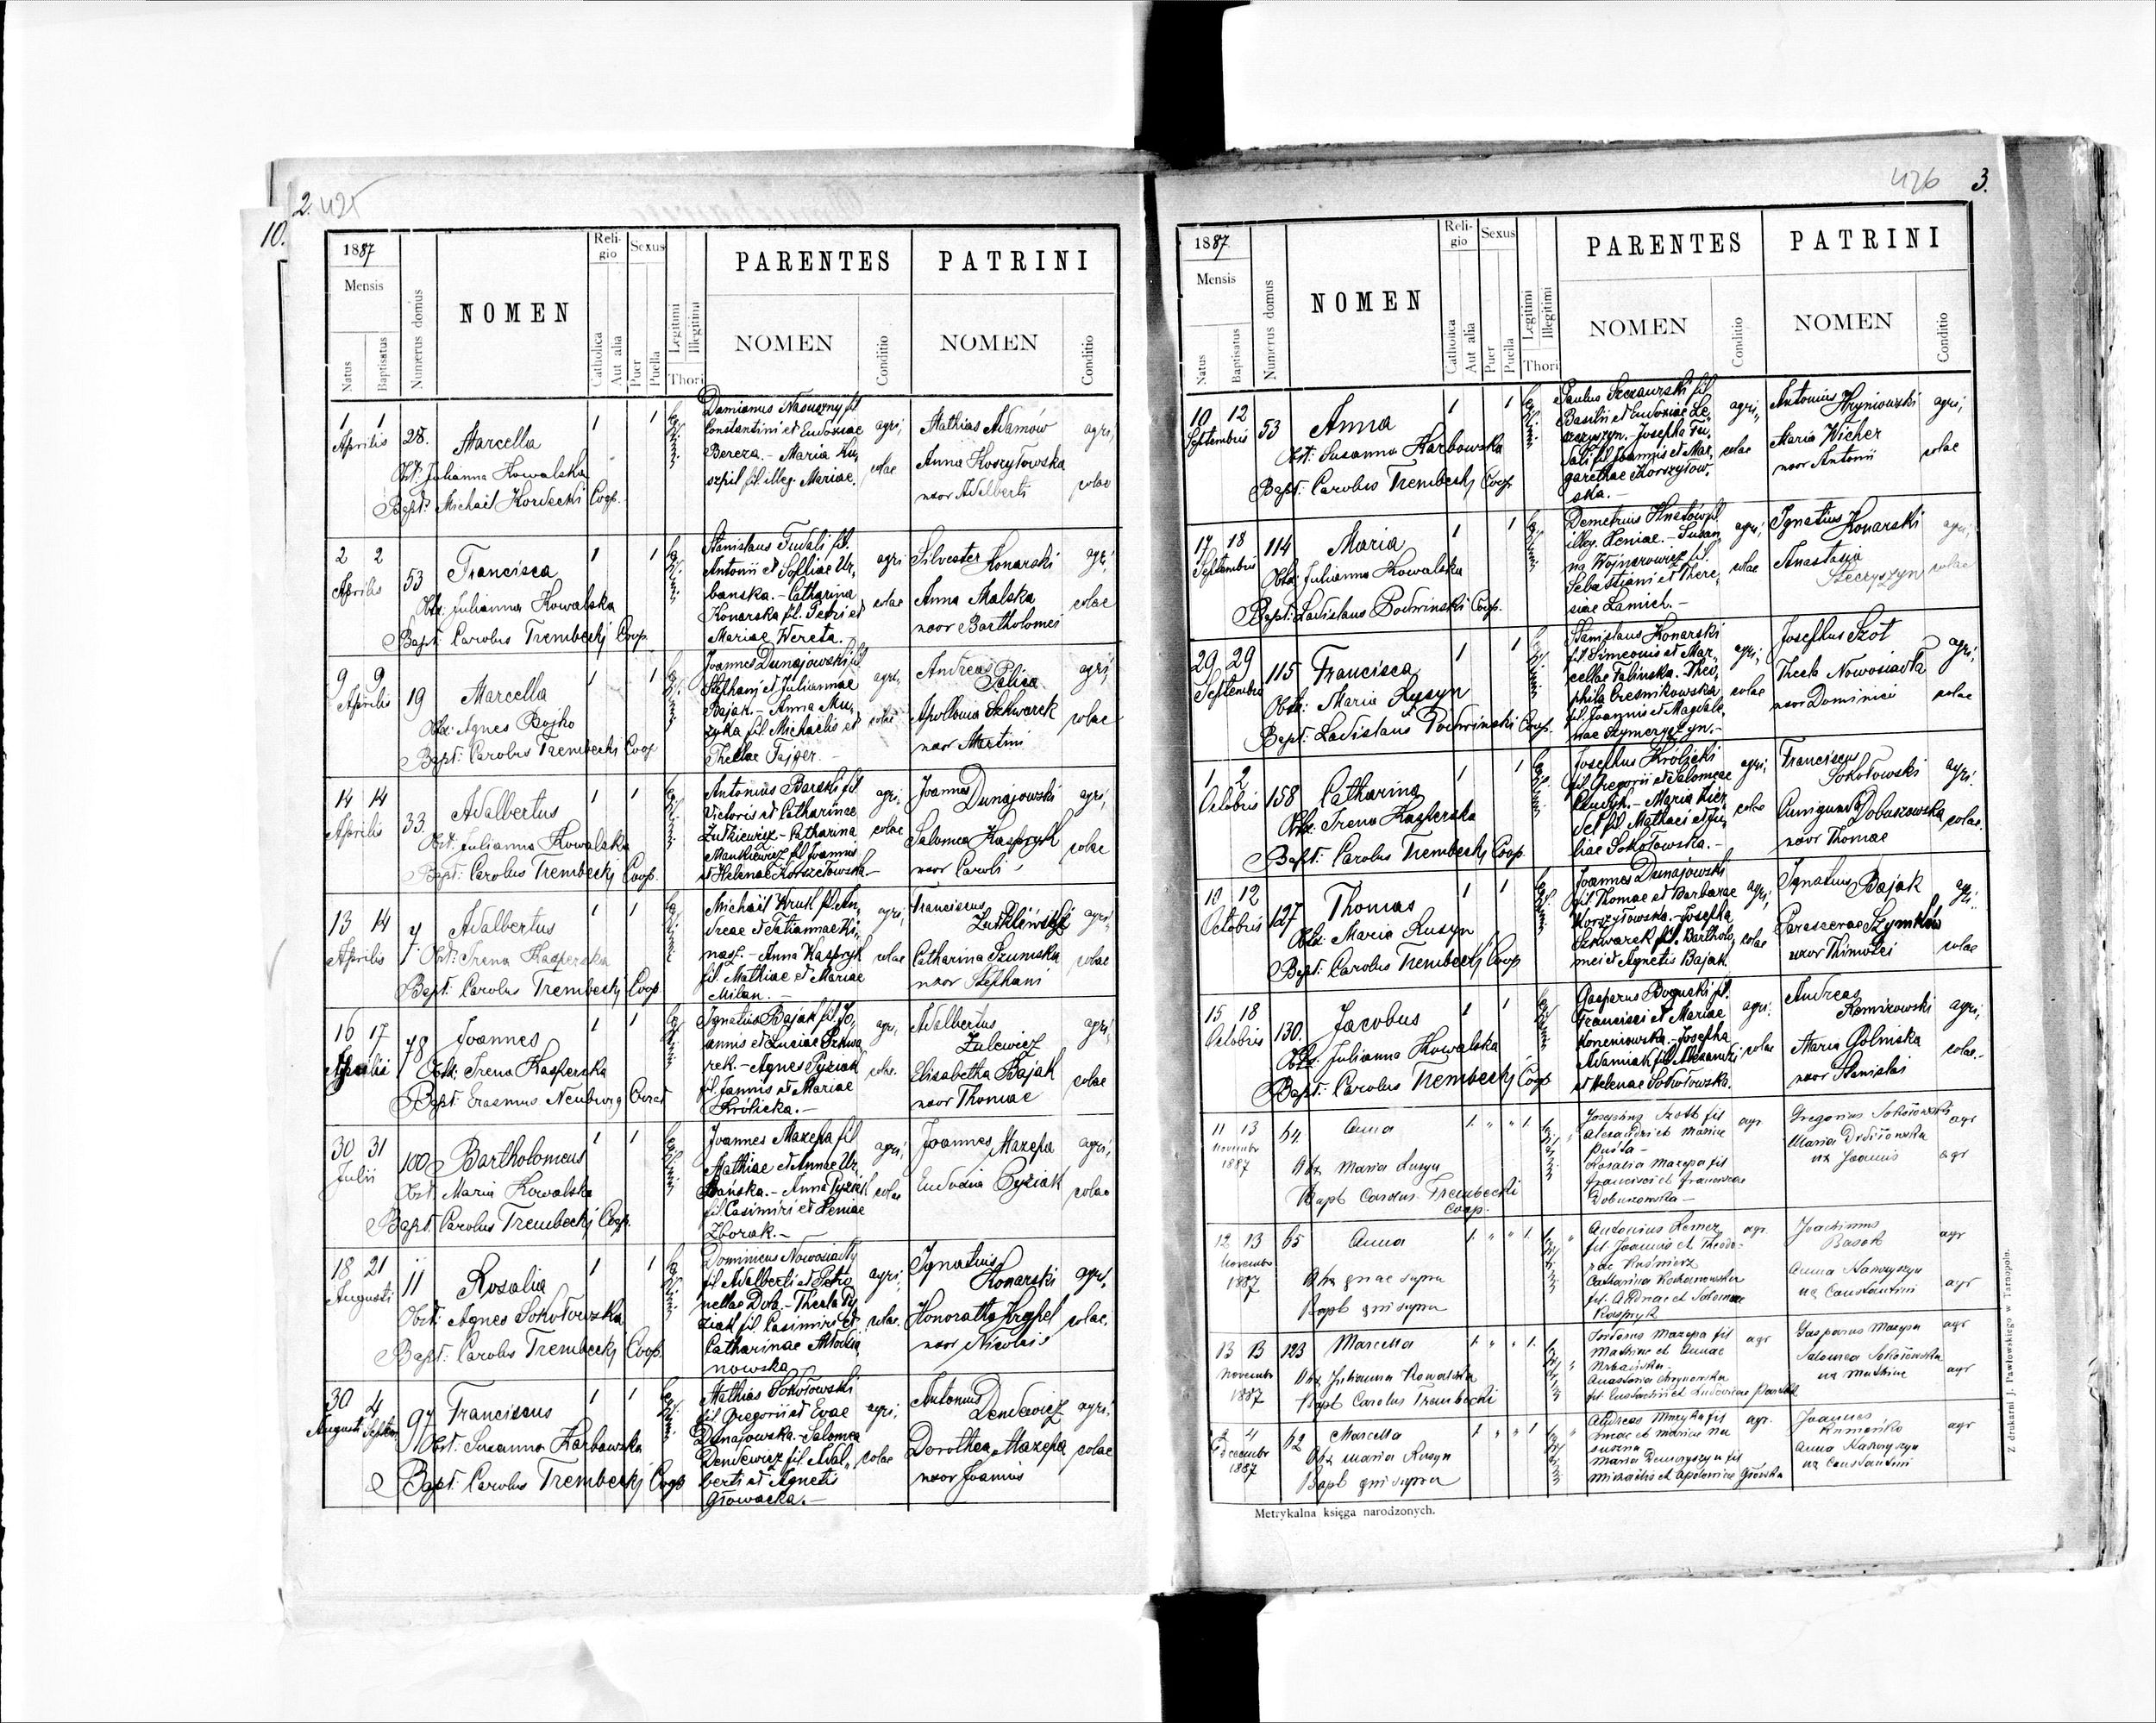 2. 425
10.
1887
Mensis
Natus
Baptisatus
Numerus domus
NOMEN
Religio
Catholica
Aut alia
Sexus
Puer
Puella
Legitimi
Illegitimi
Thori
PARENTES
NOMEN
Conditio
PATRINI
NOMEN
Conditio
1 1
Aprilis
28.
Marcella
Obst: Julianna Kowalska
Bapt: Michaël Kordecki Coop.
1 1
Damianus Nasuszny fil
Constantini et Eudoxiae
Bereza. - Maria Ku,
szpil fil. illeg. Mariae.
agri,
colae
Mathias Adamów
Anna Koszyłowska
uxor Adalberti
agri,
colae
2 2
Aprilis
53
Francisca
Obst: Julianna Kowalska
Bapt: Carolus Trembecki Coop.
1 1
Stanislaus Tudali fil.
Antonii et Sophiae Ur,
banska. - Catharina
Konarska fil. Petri et
Mariae Wereta.
agri
colae
Silvester Konarski
Anna Malska
uxor Bartholomei
agri,
colae
9 9
Aprilis
19
Marcella
Obst: Agnes Bojko
Bapt: Carolus Trembecki Coop
1 1
Joannes Dunajowski fil
Stephani et Juliannae
Bajak. - Anna Mu,
zyka fil. Michaelis et
Theclae Tajger.
agri,
colae
Andreas
Palica
Apollonia Szkwarek
uxor Martini
agri,
colae
14 14
Aprilis
33.
Adalbertus
Obst: Julianna Kowalska
Bapt: Carolus Trembecki Coop.
1 1
Antonius Barski fil
Victoris et Catharinae
Żulkiewicz - Catharina
Mankiewicz fil Joannis
et Helenae Korszełowska
agri,
colae
Joannes
Dunajowski
Salomea Kaspryk
uxor Caroli
agri,
colae
13 14
Aprilis
7
Adalbertus
Obst: Irena Kasperska
Bapt: Carolus Trembecki Coop.
1 1
Michaël Kruk fil. An,
dreae et Tatiannae Ki,
nasz. - Anna Kaspryk
fil. Mathiae et Mariae
Milan.
agri,
colae
Franciscus
Catharina Szumska
uxor Stephani
agri,
colae
16 17
Aprilis
78
Joannes
Obst: Irena Kasperska
Bapt: Erasmus Neuburg
1 1
Ignatius Bajak fil. Jo,
annis et Luciae Szkwa
rek. - Agnes Pyziak
fil. Joannis et Mariae
Królicka.
agri,
colae
Adalbertus
Zulewicz
Elisabetha Bajak
uxor Thomae
agri,
colae
30 31
Julii
100
Bartholomeus
Obst: Maria Kowalska
Bapt: Carolus Trembecki Coop.
1 1
Joannes Mazepa fil
Mathiae et Annae Ur,
bańska. - Anna Pyziak
fil. Casimiri et Xeniae
Zborak.
agri,
colae
Joannes Mazepa
Eudoxia Pyziak
agri,
colae
18 21
Augusti
11
Rosalia
Obst: Agnes Sokołowska
Bapt: Carolus Trembecki Coop.
1 1
Dominicus Nowosiadły
fil Adalberti et Petro
nellae Dola. - Thecla Py
ziak fil. Casimiri et
Catharinae
nowska.
agri,
colae.
Ignatius
Konarski
Honoratha
uxor Nicolai
agri,
colae.
30 4
Augusti Septem
97
Franciscus
Obst: Susanna Karbowska
Bapt: Carolus Trembecki Coop
1 1
Mathias Sokołowski
fil. Gregorii et Evae
Dunajowska. Salomea
Dendewicz fil. Adal,
berti et Agnetis
Głowacka.
agri,
colae
Antonius
Dendewicz
Dorothea Mazepa
uxor Joannis
agri,
colae
426 3.
1887
Mensis
Natus
Baptisatus
Numerus domus
NOMEN
Religio
Catholica
Aut alia
Sexus
Puer
Puella
Legitimi
Illegitimi
Thori
PARENTES
NOMEN
Conditio
PATRINI
NOMEN
Conditio
10 12
Septembris
53
Anna
Obst: Susanna Karbowska
Bapt: Carolus Trembecki Coop
1 1
Paulus Szczawski fil
Basilii et Eudoxiae Le,
szczyszyn. - Josepha Tu,
dali fil Joannis et Mar,
garethae Korszyłow,
ska.
agri,
colae
Antonius Hryniowski
Maria Wicher
uxor Antonii
agri,
colae
17 18
Septembris
114
Maria
Obst: Julianna Kowalska
Bapt: Ladislaus Podwinski Coop.
1 1
Demetrius Hnatów fil.
illeg. Xeniae. - Susan,
na Wojnarowicz fil.
Sebastiani et There,
siae Lamich.
agri,
colae
Ignatius Konarski
Anastasia
Steczyszyn
agri,
colae
29 29
Septembris
115
Francisca
Obst: Maria Rusyn
Bapt: Ladislaus Podwinski Coop.
1 1
Stanislaus Konarski
fil. Simeonis et Mar,
cellae Talinska. Theo
phila Cresnikowska
fil. Joannis et Magdale,
nae Szymczyszyn.
agri,
colae
Josephus Szot
Thecla Nowosiadła
uxor Dominici
agri,
colae
1 2
Octobris
158
Catharina
Obst: Irena Kasperska
Bapt: Carolus Trembecki Coop.
1 1
Josephus Królicki
fil. Gregorii et Salomeae
- Maria Kier,
fil. Mathaei et Ju,
liae Sokołowska.
agri,
colae
Franciscus
Sokołowski
Cunigunda Dobuszowska
uxor Thomae
agri.
colae.
10 12
Octobris
127
Thomas
Obst: Maria Rusyn
Bapt: Carolus Trembecki Coop
1 1
Joannes Dunajowski
fil. Thomae et Barbarae
Korszyłowska. - Josepha
Szkwarek fil. Bartholo,
mei et Agnetis Bajak.
agri,
colae
Ignatius Bajak
Parascevae Szymków
uxor Thimotei
agri,
colae
15 18
Octobris
130.
Jacobus
Obst: Julianna Kowalska
Bapt: Carolus Trembecki Coop
1 1
Gasparus Boguski fil.
Francisci et Mariae
Koneniowska. - Josepha
Adamiak fil. Alexandri
et Helenae Sokołowska.
agri.
colae
Andreas
Komirowski
Maria Golinska
uxor Stanislai
agri,
colae.
11 13
Novembr
1887
64
Anna
Obst Maria Rusyn
Bapt Carolus Trembecki
coop.
1 " " 1
Josephus Szott fil
Alexandri et Mariae
Pusta -
Rosalia Mazepa fil
Francisci et Franciscae
Dobuszowska -
agr
Gregorius Sokołowski
Maria
ux Joannis
agr
agr
12 13
Novembr
1887
65
Anna
Obst quae supra
Bapt qui supra
1 " " 1
Antonius Remer
fil Joannis et Theodo-
rae Kuśmierz
Catharina Kochanowska
fil. Andreae et Salomeae
Kaspryk
agr.
Joachimus
Basak
Anna Harnyszyn
ux Constantini
agr
agr
13 13
Novembr
1887
123
Marcella
Obst Julianna Kowalska
Bapt Carolus Trembecki
1 " " 1
Antonius Mazepa fil
Mathiae et Annae
Urbańska -
Anastasia
fil. Eustachii et Ludovicae
agr
Gasparus Mazepa
Salomea Sokołowska
ux Mathiae
agr
agr
2 4
Decembr
1887
62
Marcella
Obst Maria Rusyn
Bapt qui supra
1 " " 1
Andreas Muzyka fil
Lucae et Mariae Na
suszna
Maria Demczyszyn fil
Michaelis et Apoloniae Głowska
agr.
Joannes
Anna Harnyszyn
ux Constantini
agr
Metrykalna księga narodzonych.
Z drukarni J. Pawłowskiego w Tarnopolu.